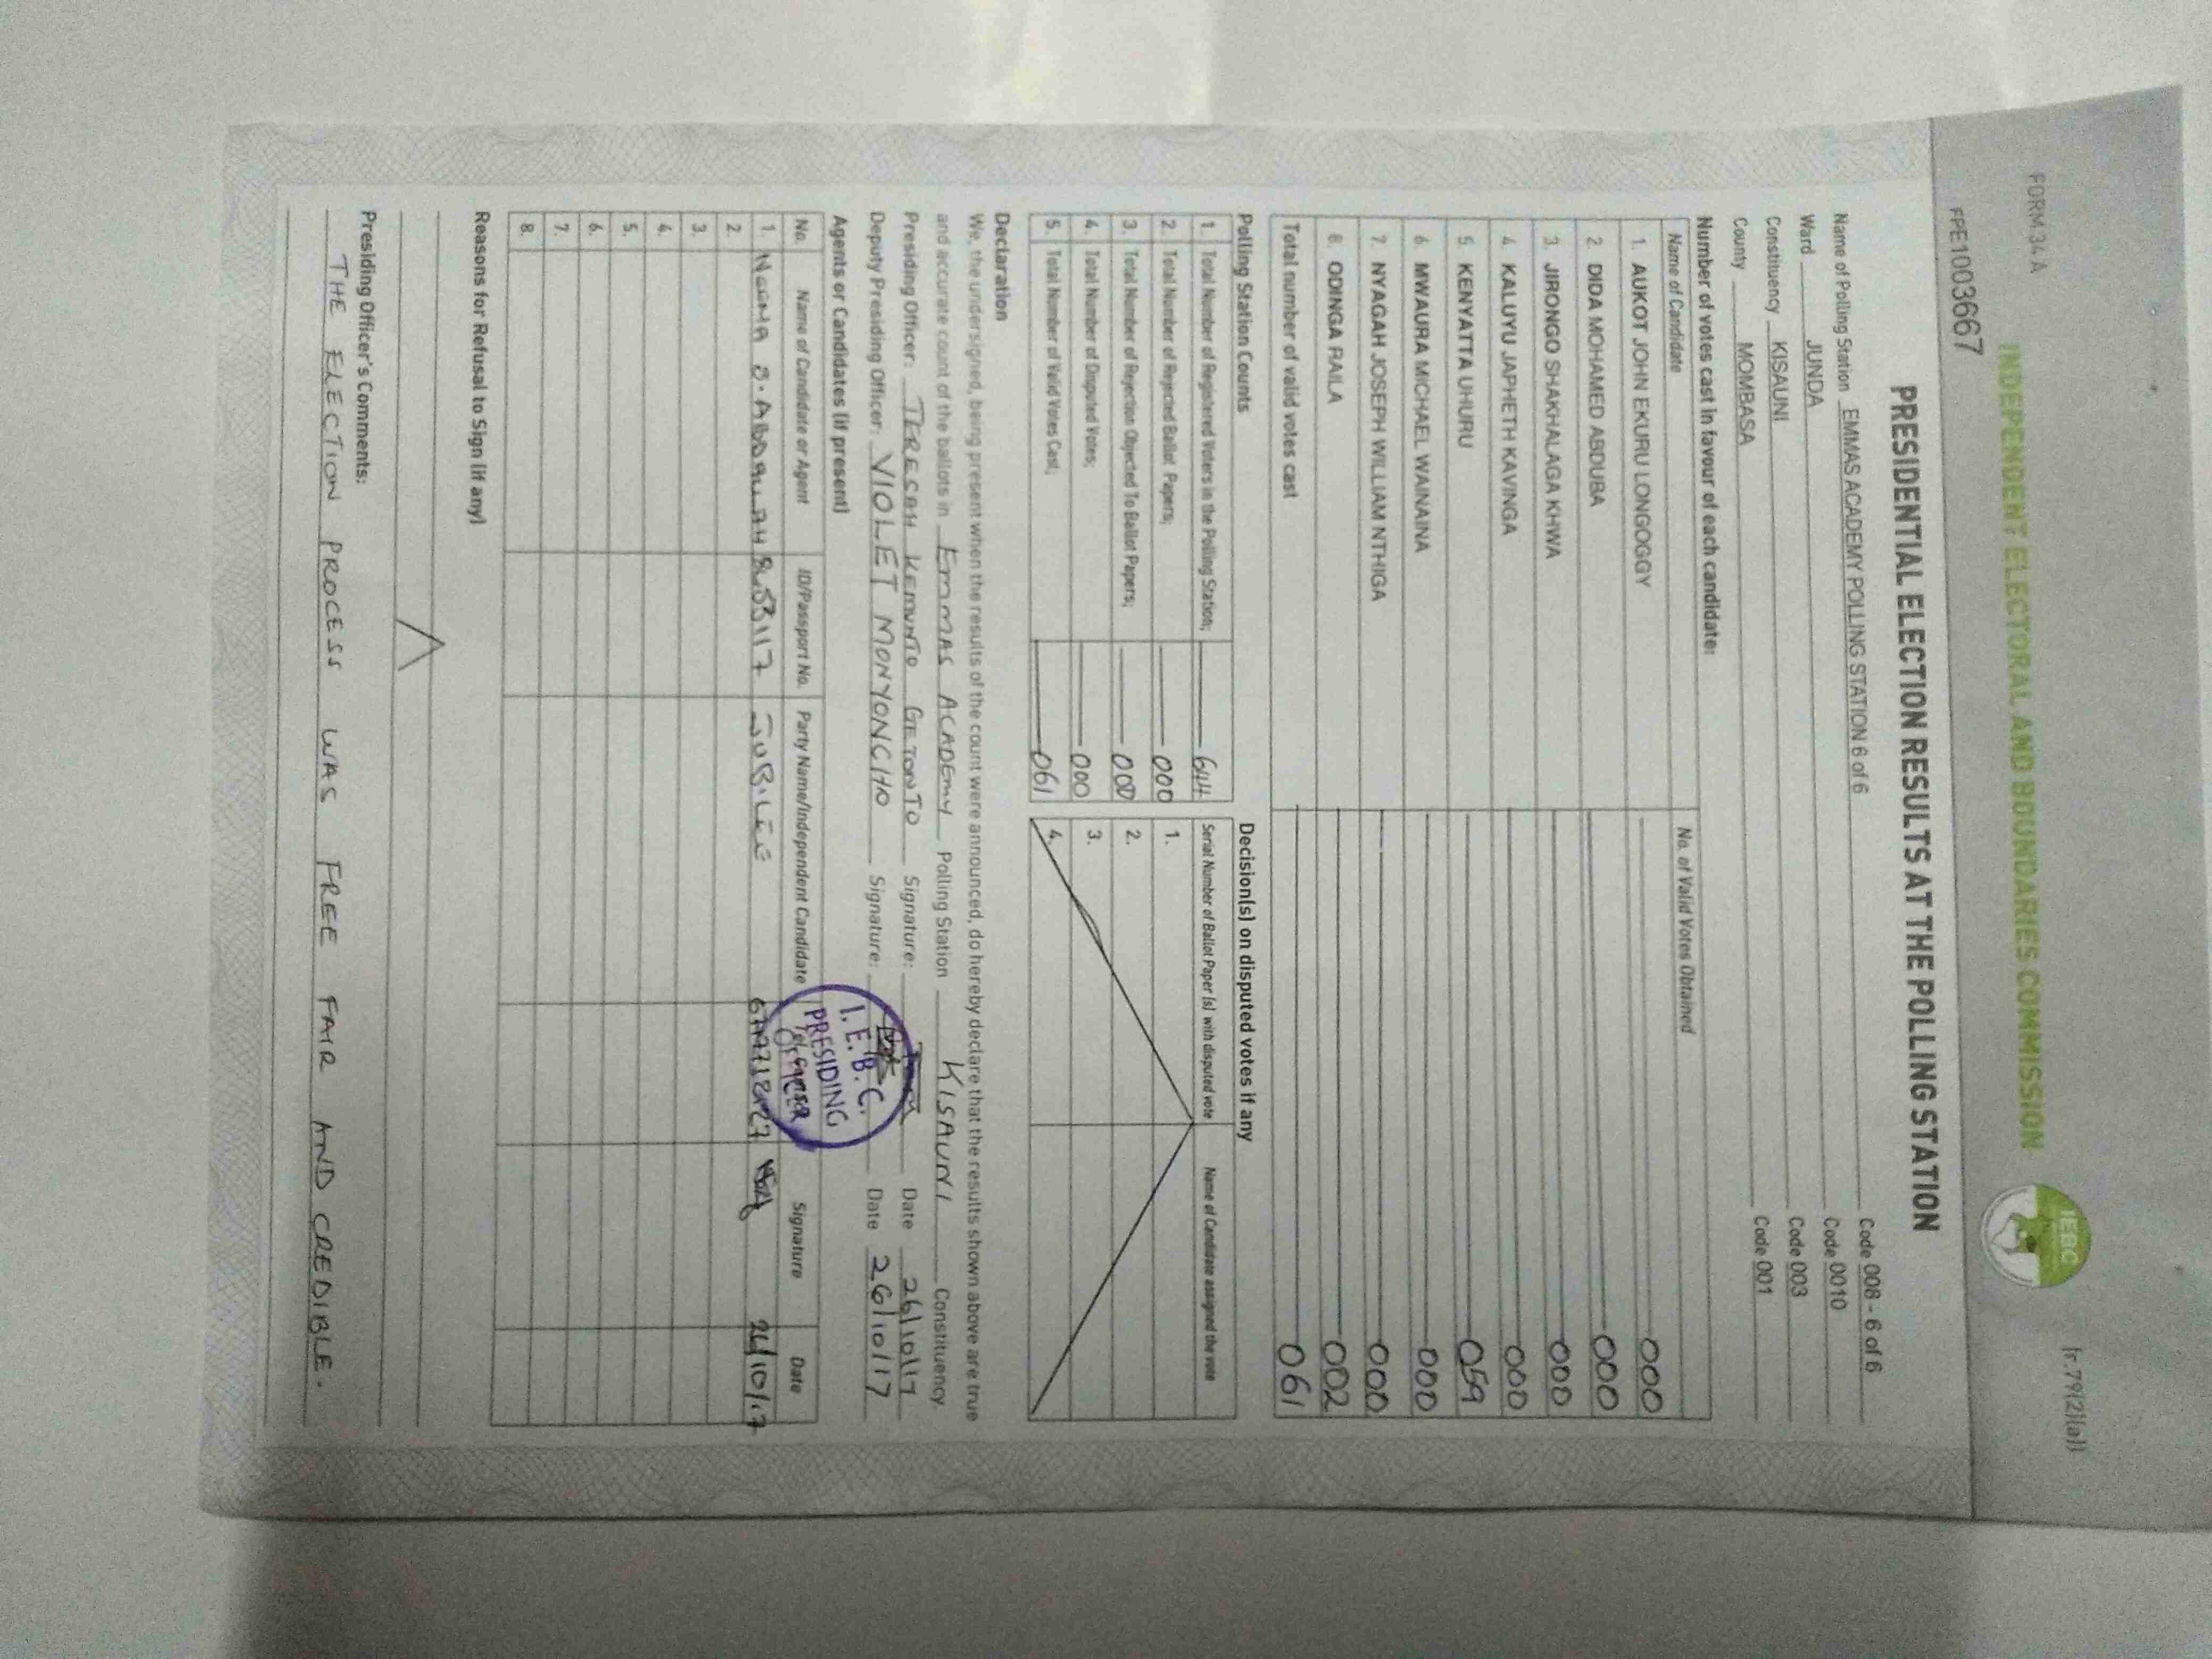 FORM 34 A
INDEPENDENT ELECTORAL AND BOUNDARIES COMMISSION
IEBC
(r.79(2)(a))
PPE1003667
PRESIDENTIAL ELECTION RESULTS AT THE POLLING STATION
Name of Polling Station EMMAS ACADEMY POLLING STATION 6 of 6 Code 008 - 6 of 6
Ward JUNDA Code 0010
Constituency KISAUNI Code 003
County MOMBASA Code 001
Number of votes cast in favour of each candidate:
Name of Candidate No. of Valid Votes Obtained
1. AUKOT JOHN EKURU LONGOGGY 000
2. DIDA MOHAMED ABDUBA 000
3. JIRONGO SHAKHALAGA KHWA 000
4. KALUYU JAPHETH KAVINGA 000
5. KENYATTA UHURU 059
6. MWAURA MICHAEL WAINAINA 000
7. NYAGAH JOSEPH WILLIAM NTHIGA 000
8. ODINGA RAILA 002
Total number of valid votes cast 061
Polling Station Counts
1. Total Number of Registered Voters in the Polling Station; 644
2. Total Number of Rejected Ballot Papers; 000
3. Total Number of Rejection Objected To Ballot Papers; 000
4. Total Number of Disputed Votes; 000
5. Total Number of Valid Votes Cast; 061
Decision(s) on disputed votes if any
Serial Number of Ballot Paper (s) with disputed vote Name of Candidate assigned the vote
1.
2.
3.
4.
Declaration
We, the undersigned, being present when the results of the count were announced, do hereby declare that the results shown above are true
and accurate count of the ballots in EMMAS ACADEMY Polling Station KISAUNI Constituency
Presiding Officer: TERESAH KEMUNTO GETONTO Signature: Date 26/10/17
Deputy Presiding Officer: VIOLET MONYONCHO Signature: Date 26/10/17
I.E.B.C.
PRESIDING
OFFICER
Agents or Candidates (if present)
No. Name of Candidate or Agent ID/Passport No. Party Name/Independent Candidate Signature Date
1. JUBILEE 26/10/17
2.
3.
4.
5.
6.
7.
8.
Reasons for Refusal to Sign (if any)
Presiding Officer's Comments:
THE ELECTION PROCESS WAS FREE FAIR AND CREDIBLE.